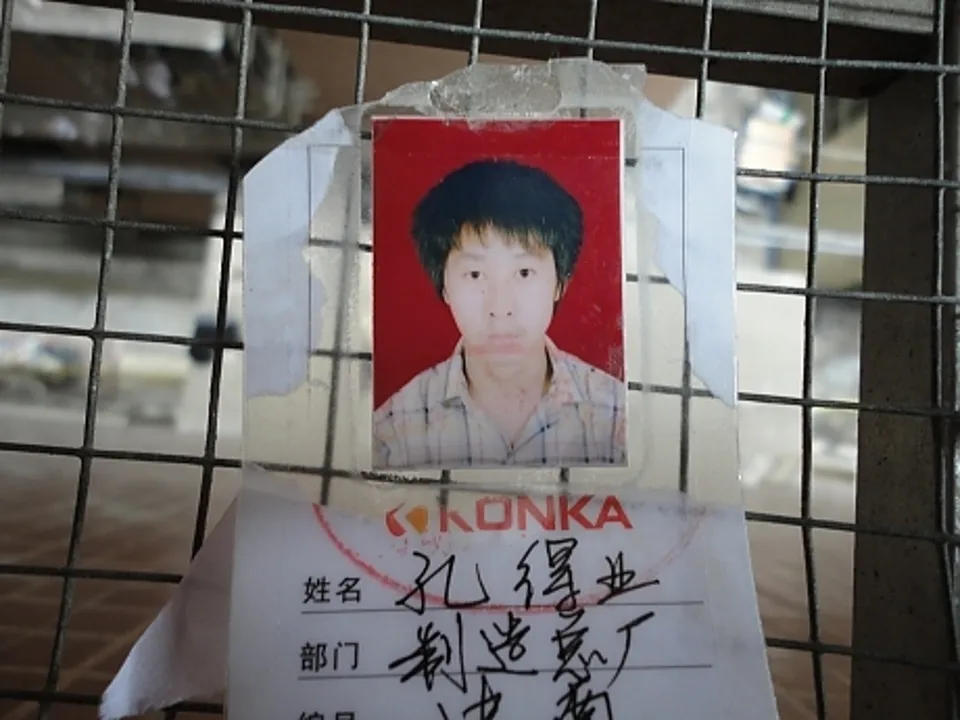 KONKA
姓名 孔得业
部门 制造总厂
编号